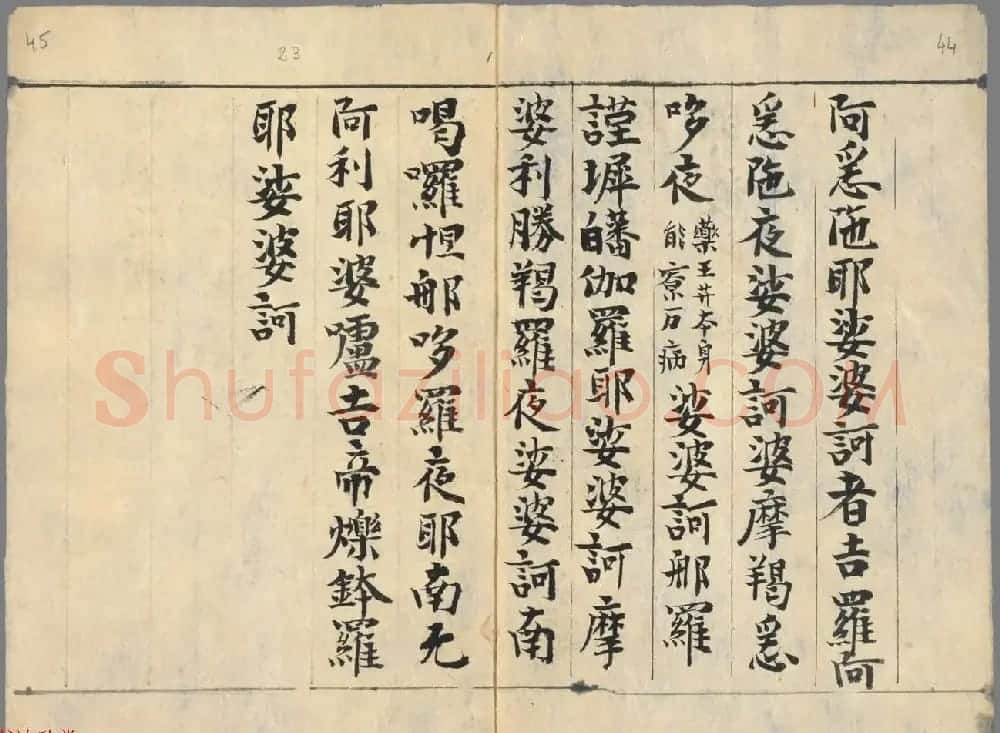 阿悉陁耶娑婆訶者吉羅阿
悉陁夜娑婆訶婆摩羯悉
哆夜藥王井夲身能寮万病娑婆訶那羅
謹墀皤伽羅耶娑婆訶摩
婆利勝羯羅夜娑婆訶南
喝囉怛那哆羅夜耶南无
阿利耶婆嚧吉帝爍鉢羅
耶娑婆訶
45
23
44
Shufaziliao.COM